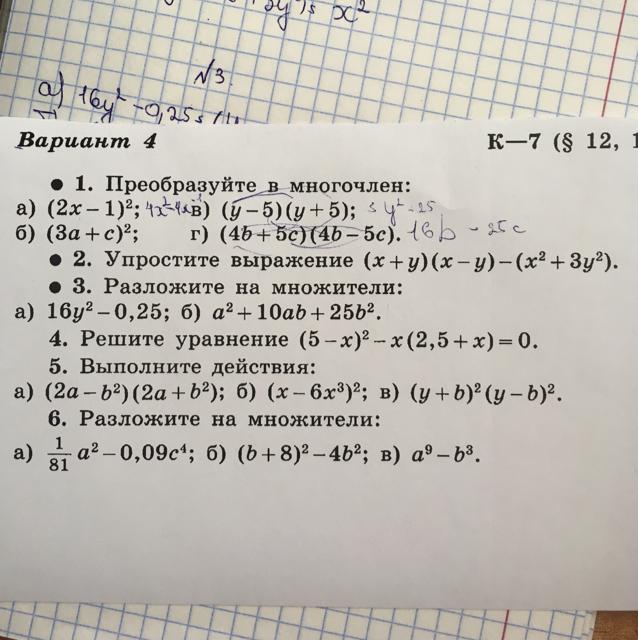 x²
N3.
а) 16y² - 0,25
Вариант 4 К—7 (§ 12, 1
● 1. Преобразуйте в многочлен:
а) (2x – 1)²; в) (y – 5)(y + 5); y² - 25
б) (3a + c)²; г) (4b + 5c)(4b – 5c). 16b - 25c
● 2. Упростите выражение (x + y)(x – y) – (x² + 3y²).
● 3. Разложите на множители:
а) 16y² – 0,25; б) a² + 10ab + 25b².
4. Решите уравнение (5 – x)² – x(2,5 + x) = 0.
5. Выполните действия:
а) (2a – b²)(2a + b²); б) (x – 6x³)²; в) (y + b)²(y – b)².
6. Разложите на множители:
а) 1/81 a² – 0,09c⁴; б) (b + 8)² – 4b²; в) a⁹ – b³.